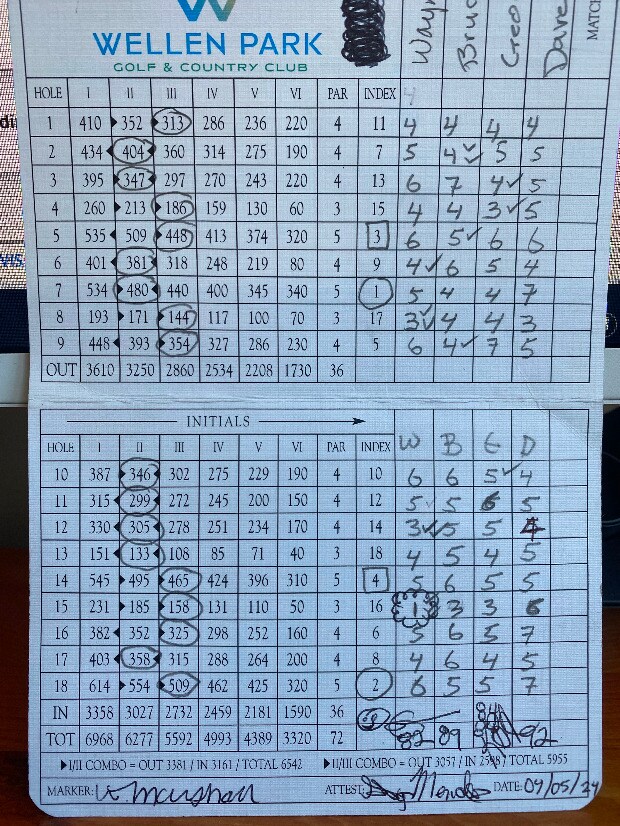 WELLEN PARK
GOLF & COUNTRY CLUB
Wayn Bruc Greo Dave MATCH
HOLE I II III IV V VI PAR INDEX 4
1 410 352 313 286 236 220 4 11 4 4 4 4
2 434 404 360 314 275 190 4 7 5 4✓ 5 5
3 395 347 297 270 243 220 4 13 6 7 4✓ 5
4 260 213 186 159 130 60 3 15 4 4 3✓ 5
5 535 509 448 413 374 320 5 3 6 5✓ 6 6
6 401 381 318 248 219 80 4 9 4✓ 6 5 4
7 534 480 440 400 345 340 5 1 5 4 4 7
8 193 171 144 117 100 70 3 17 3✓ 4 4 3
9 448 393 354 327 286 230 4 5 6 4✓ 7 5
OUT 3610 3250 2860 2534 2208 1730 36
INITIALS
HOLE I II III IV V VI PAR INDEX W B G D
10 387 346 302 275 229 190 4 10 6 6 5✓ 4
11 315 299 272 245 200 150 4 12 5 5 6 5
12 330 305 278 251 234 170 4 14 3✓ 5 5 4
13 151 133 108 85 71 40 3 18 4 5 4 5
14 545 495 465 424 396 310 5 4 5 6 5 5
15 231 185 158 131 110 50 3 16 1 3 3 6
16 382 352 325 298 252 160 4 6 5 6 5 7
17 403 358 315 288 264 200 4 8 4 6 4 5
18 614 554 509 462 425 320 5 2 6 5 5 7
IN 3358 3027 2732 2459 2181 1590 36 84
TOT 6968 6277 5592 4993 4389 3320 72 82 89 92
I/II COMBO = OUT 3381 / IN 3161 / TOTAL 6542 II/III COMBO = OUT 3057 / IN 2598 / TOTAL 5955
MARKER: W Marshall ATTEST: DATE: 09/05/24